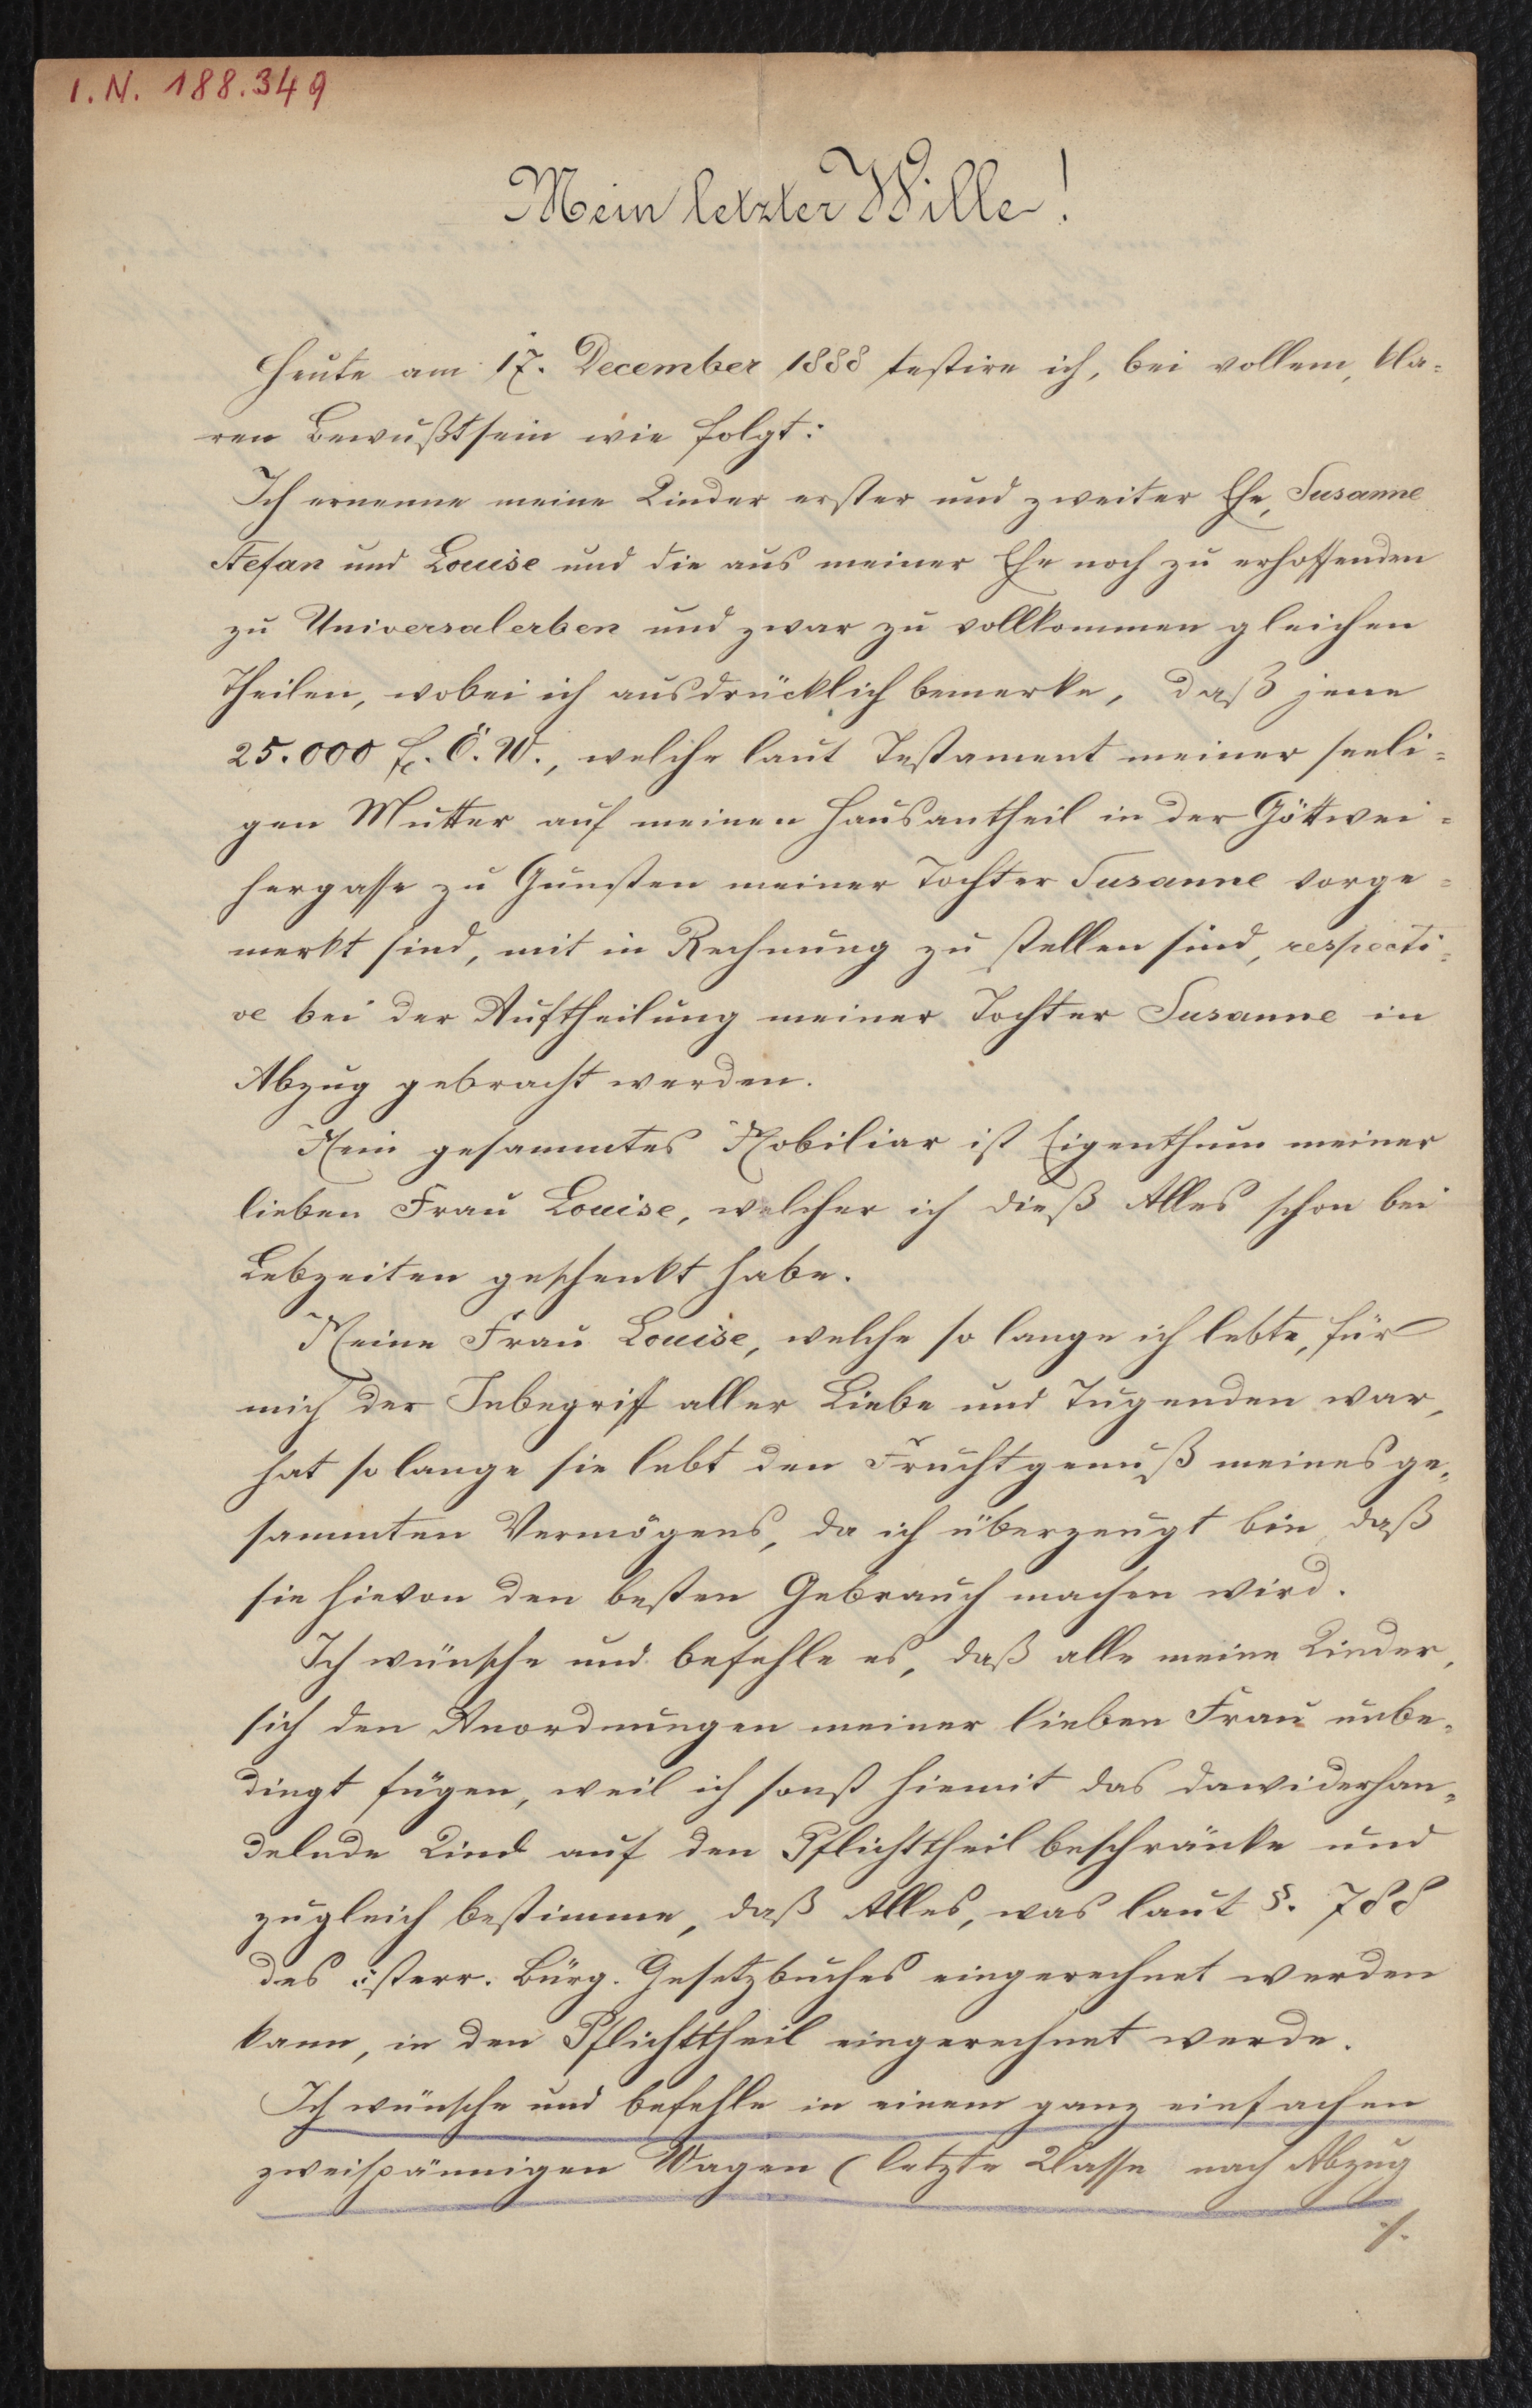 I.N. 188.349
Mein letzter Wille!
Heute am 17. December 1888 testire ich, bei vollem, kla-
ren Bewußtsein wie folgt:
Ich ernenne meine Kinder erster und zweiter Ehe, Susanne
Stefan und Louise und die aus meiner Ehe noch zu erhoffenden
zu Universalerben und zwar zu vollkommen gleichen
Theilen, wobei ich ausdrücklich bemerke, daß jene
25.000 fl. Ö. W., welche laut Testament meiner seeli-
gen Mutter auf meinen Hausantheil in der Göttwei-
hergasse zu Gunsten meiner Tochter Susanne vorge-
merkt sind, mit in Rechnung zu stellen sind, respecti-
ve bei der Auftheilung meiner Tochter Susanne in
Abzug gebracht werden.
Mein gesammtes Mobiliar ist Eigenthum meiner
lieben Frau Louise, welcher ich dieß Alles schon bei
Lebzeiten geschenkt habe.
Meine Frau Louise, welche so lange ich lebte, für
mich der Inbegriff aller Liebe und Tugenden war,
hat so lange sie lebt den Fruchtgenuß meines ge-
sammten Vermögens, da ich überzeugt bin, daß
sie hievon den besten Gebrauch machen wird.
Ich wünsche und befehle es, daß alle meine Kinder,
sich den Anordnungen meiner lieben Frau unbe-
dingt fügen, weil ich sonst hiemit das dawiderhan-
delnde Kind auf den Pflichttheil beschränke und
zugleich bestimme, daß Alles, was laut §. 788
des österr. Bürg. Gesetzbuches eingerechnet werden
kann, in den Pflichttheil eingerechnet werde.
Ich wünsche und befehle in einem ganz einfachen
zweispännigen Wagen (letzte Klasse nach Abzug
./.